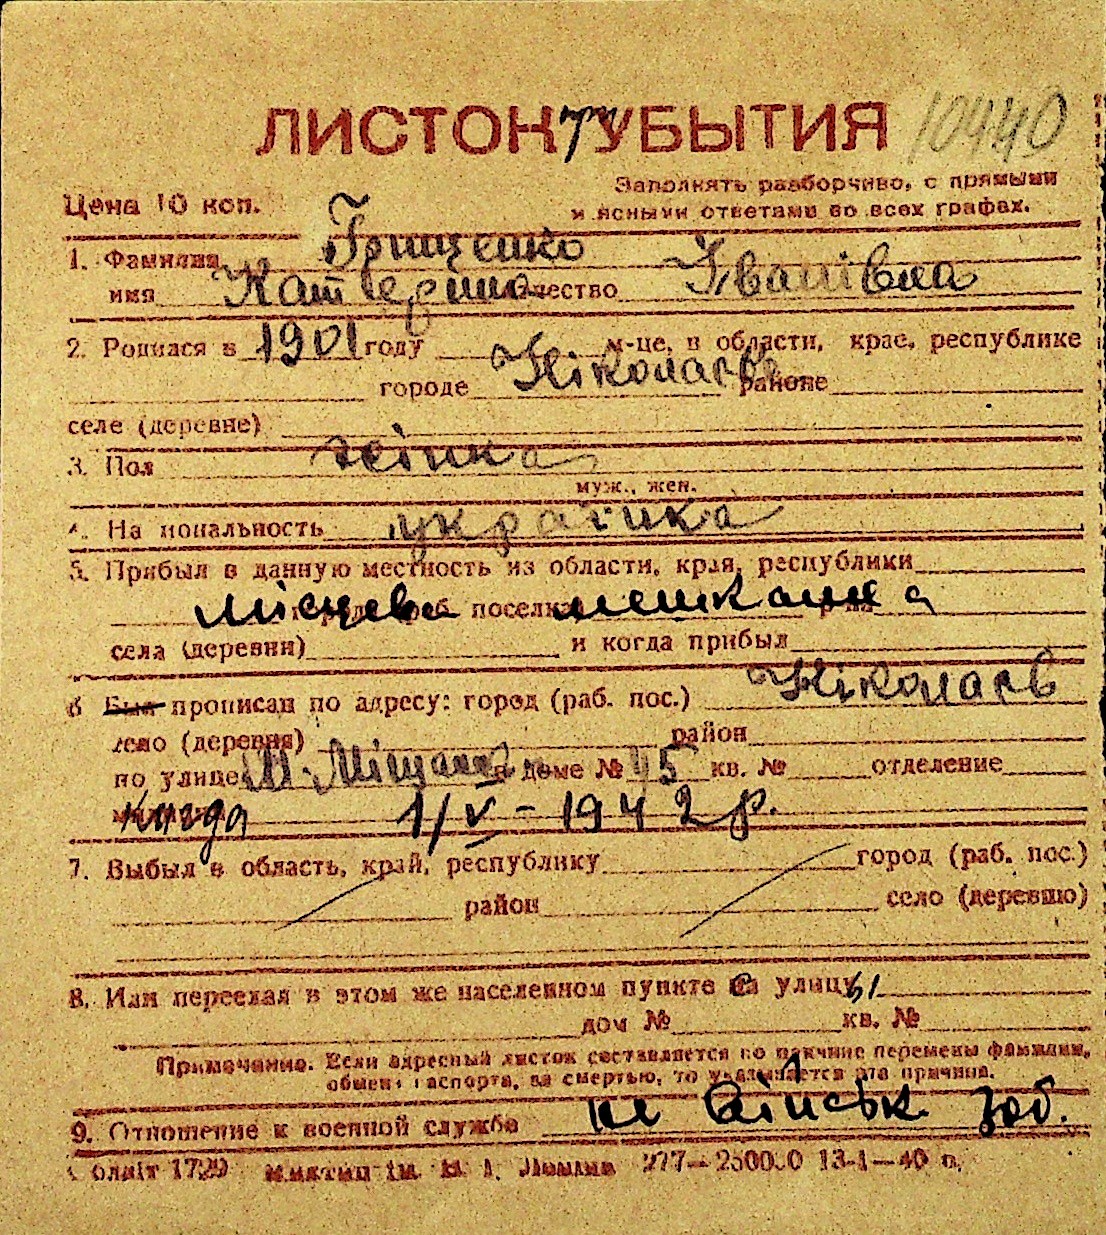 ЛИСТОК УБЫТИЯ 10440
Заполнять разборчиво, с прямыми
Цена 10 коп. и ясными ответами во всех графах.
1. Фамилия Грищенко
имя Катерина отчество Іванівна
2. Родился в 1901 году м-це, в области, крае, республике
городе Ніколаєв районе
селе (деревне)
3. Пол жінка
муж., жен.
4. Национальность украінка
5. Прибыл в данную местность из области, края, республики
місцева поселка мешканка
села (деревни) и когда прибыл
6 Был прописан по адресу: город (раб. пос.) Ніколаєв
село (деревня) район
по улице доме № 45 кв. № отделение
милиции Куда 1/V - 1942 р.
7. Выбыл в область, край, республику город (раб. пос.)
район село (деревню)
8. Или переехал в этом же населенном пункте с улицы
дом № кв. №
Примечание. Если адресный листок составляется по причине перемены фамилии,
обмена паспорта, за смертью, то указывается эта причина.
9. Отношение к военной службе не військ зоб.
Облліт 1729 им. В. І. Леніна 277—250000 13-1—40 в.